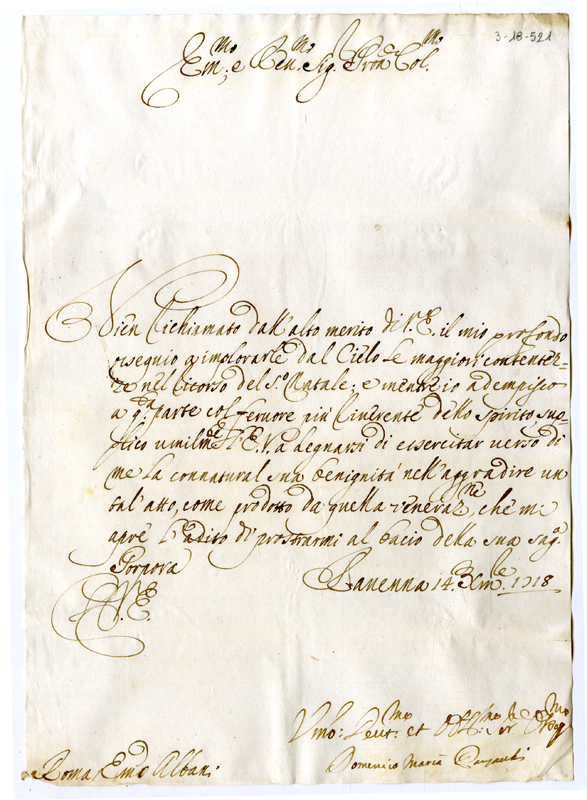 3-18-521
Em.mo e Rev.mo Sig.r Pron Col.mo
Vien richiamato dall'alto merito di V. E. il mio profondo
ossequio ad implorarle dal Cielo le maggiori contentez-
ze nel ricorso del S.o Natale; e mentre io adempisco
a q.ta parte col fervore più riverente dello spirito sup-
plico umilm.te l'E. V. a degnarsi di essercitar verso di
me la connatural sua benignità nell'aggradire un
tal'atto, come prodotto da quella veneraz.ne, che mi
apre l'adito di prostrarmi al bacio della sua sag.a
Porpora
Ravenna 14. Xm.bre 1718
V. E.
Vmo: Deut.mo et Obb.mo Ser.
Domenico Maria
Roma Em.o Albani